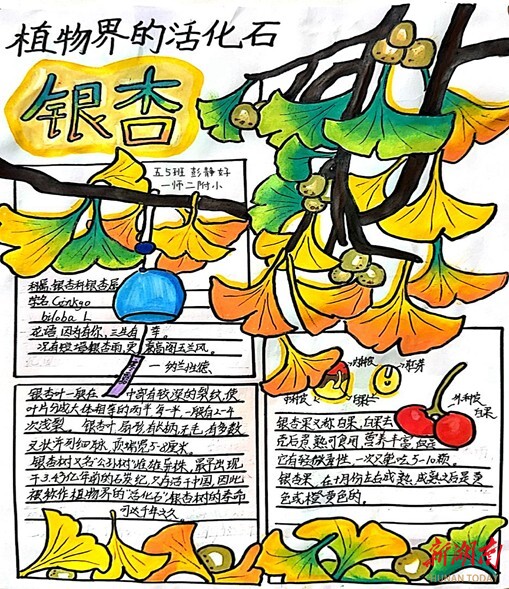 植物界的活化石
银杏
五5班 彭静好
一师二附小
科属:银杏科银杏属
学名 Ginkgo
biloba L
花语 因为有你,三生有幸。
况有短墙银杏雨,更兼高阁玉兰风。
—纳兰性德
银杏叶一般在 中部有较深的裂纹,使
叶片分成大体相等的两半,每半一般有2-4
次浅裂。银杏叶扇形,有长柄,无毛,有多数
叉状并列细脉,顶端宽5-8厘米。
银杏树又名"公孙树"雌雄异株,最早出现
于3.45亿年前的石炭纪,只存活于中国,因此
被称作植物界的"活化石"银杏树的寿命
可达千年之久。
内种皮
胚芽
中种皮
外种皮
白果
银杏果又称白果,白果去
壳后煮熟可食用,营养丰富,但是
它有轻微毒性,一次只能吃5-10颗。
银杏果,在10月份左右成熟,成熟之后是黄
色或橙黄色的。
新湖南
HUNAN TODAY